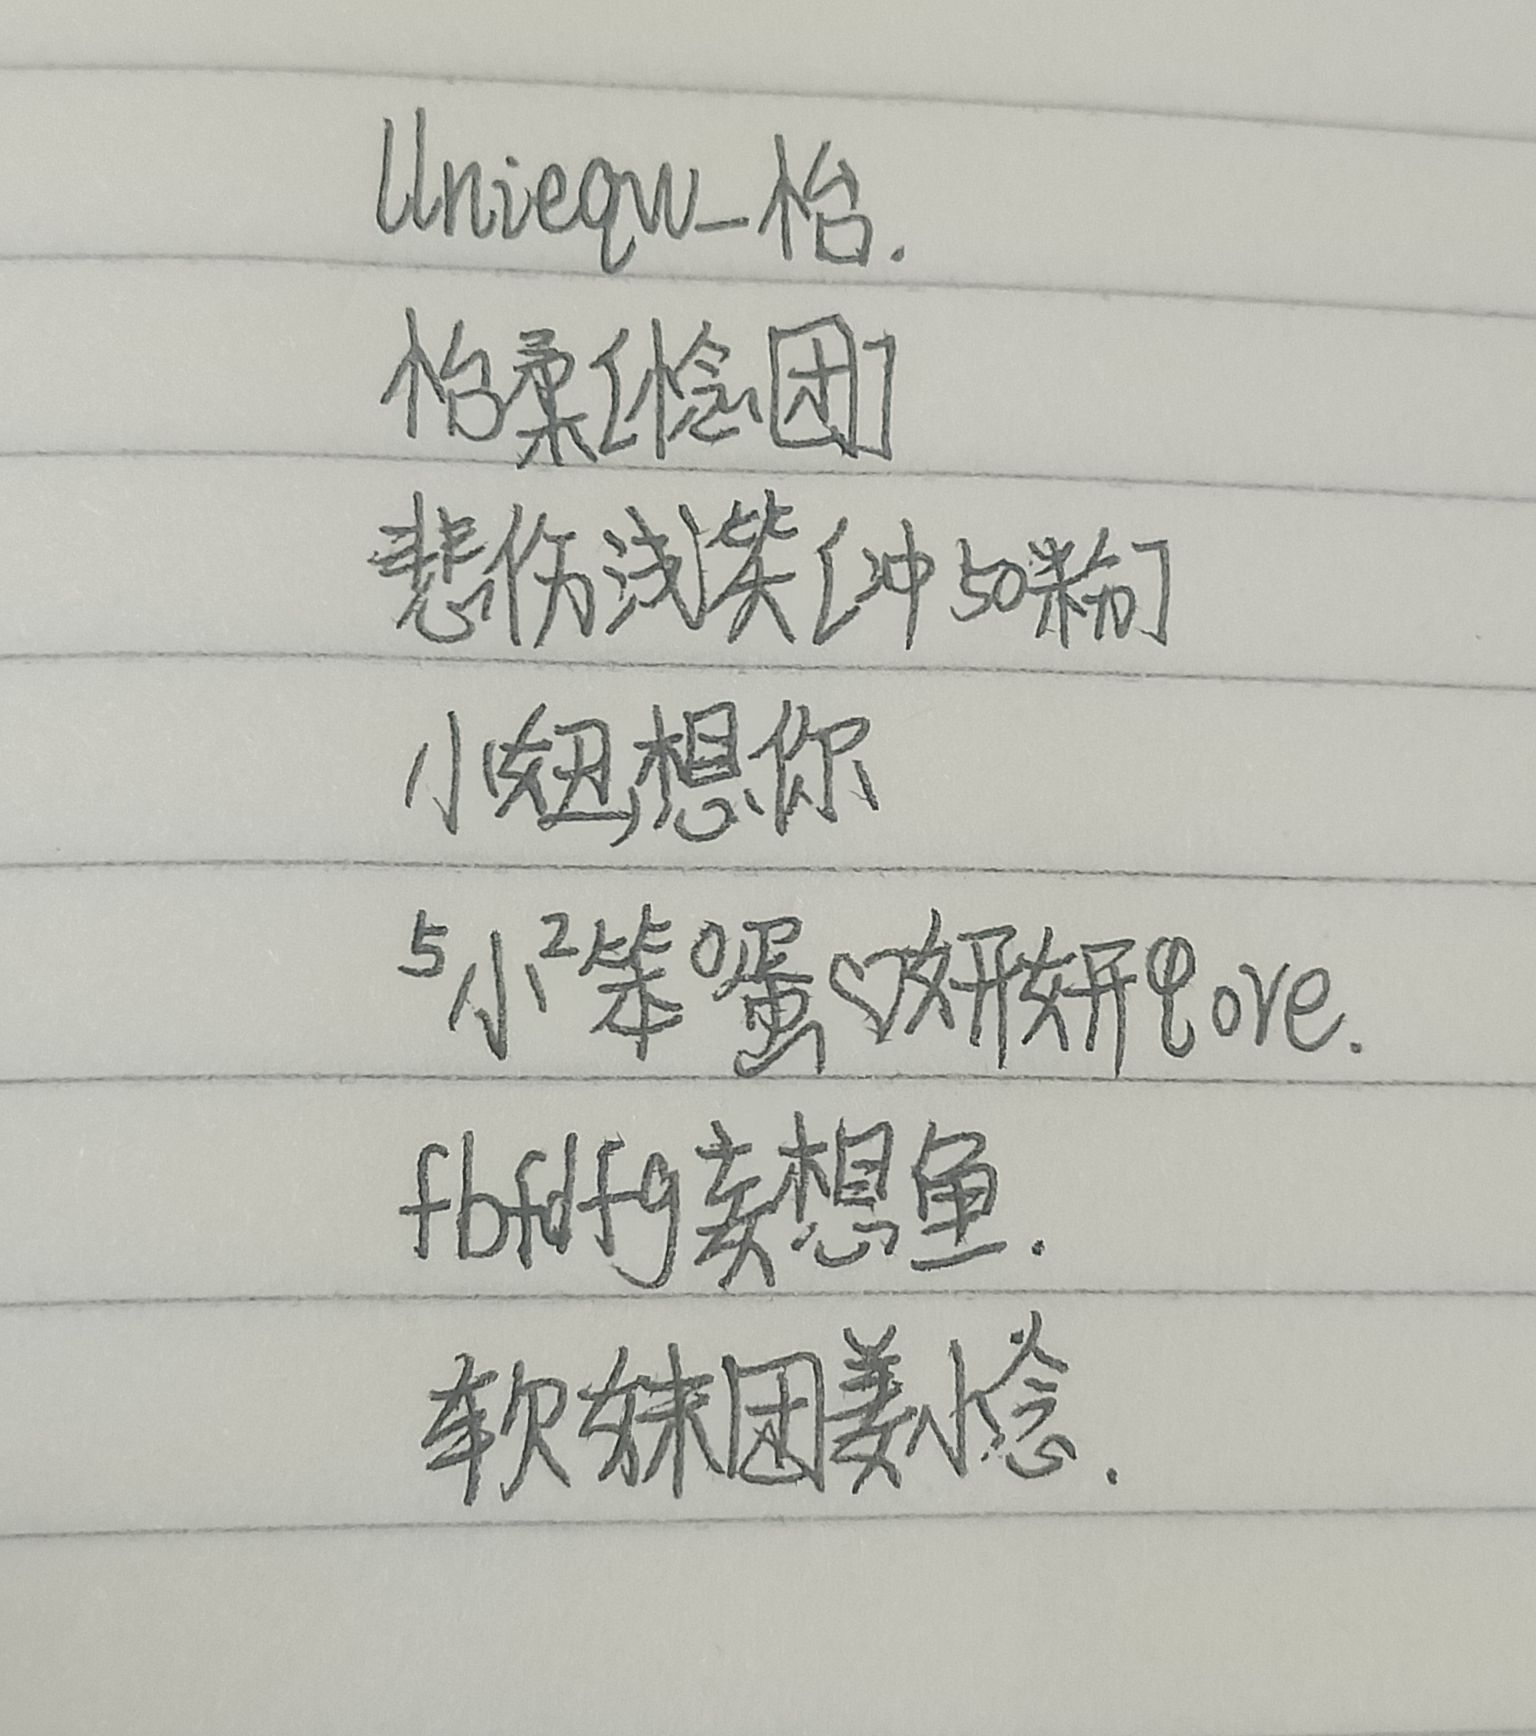 Uniequu_怡.
怡柔[惗团]
悲伤浅笑[冲50粉]
小妞,想你
⁵小²笨⁰蛋♡妍妍love.
fbfdfg卖想鱼.
软妹团姜小惗.